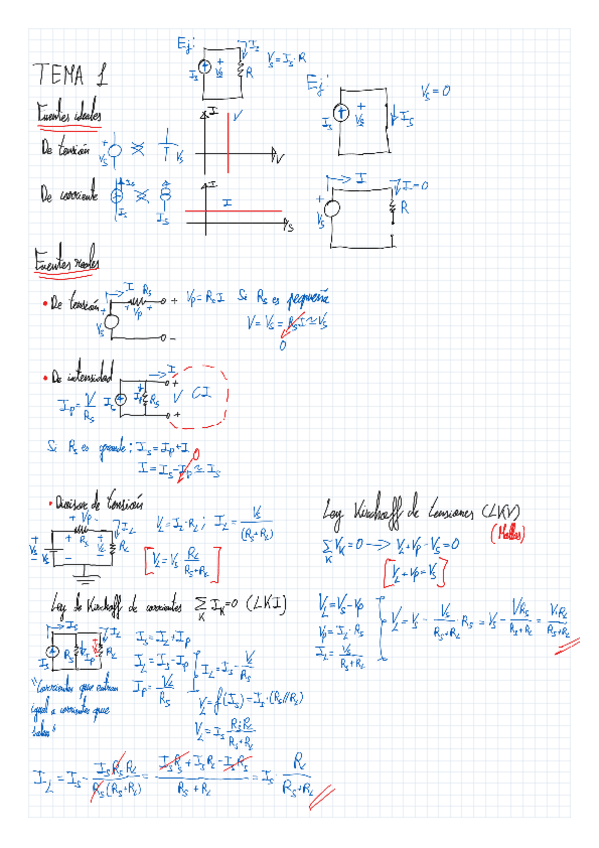 TEMA 1
Ej:
I_s
+
V_s
-
I_s
R
V_s = I_s · R
Ej:
I_s
+
V_s
-
I_s
V_s = 0
Fuentes ideales
De tensión
+
V_s
-
V_s
I
V
V
De corriente
I_s
I_s
I_s
I
I
V_s
I
V_s
I = 0
R
Fuentes reales
• De tensión
I
R_s
+ V_p -
V_s
+
-
V_p = R_s I
Si R_s es pequeña
V = V_s = R_s I ≃ V_s
0
• De intensidad
I_p = V/R_s
I_s
I_p
R_s
I
+
V
+
CI
Si R_s es grande: I_s = I_p + I
0
I = I_s - I_p ≃ I_s
• Divisor de tensión
+ V_p -
R_s
I_L
+
V_s
-
+
V_L
-
R_L
V_L = I_L · R_L ; I_L = V_s/(R_s+R_L)
[V_L = V_s R_L/(R_s+R_L)]
Ley Kirchoff de tensiones (LKV)
(Mallas)
∑_K V_K = 0 → V_L + V_p - V_s = 0
[V_L + V_p = V_s]
V_L = V_s - V_p
V_p = I_L · R_s
I_L = V_s/(R_s+R_L)
V_L = V_s - V_s/(R_s+R_L) · R_s = V_s - V R_s/(R_s+R_L) = V R_L/(R_s+R_L)
Ley de Kirchoff de corrientes ∑_K I_K = 0 (LKI)
I_s
I_s
R_s
I_p
I_L
R_L
I_s = I_L + I_p
I_L = I_s - I_p
I_p = V_L/R_s
I_L = I_s - V/R_s
V_L = f(I_s) = I_s · (R_s//R_L)
V_L = I_s R_s R_L/(R_s+R_L)
"Corrientes que entran
igual a corrientes que
salen"
I_L = I_s - I_s R_s R_L/(R_s(R_s+R_L)) = (I_s R_s + I_s R_L - I_s R_s)/(R_s + R_L) = I_s · R_s/(R_s+R_L)